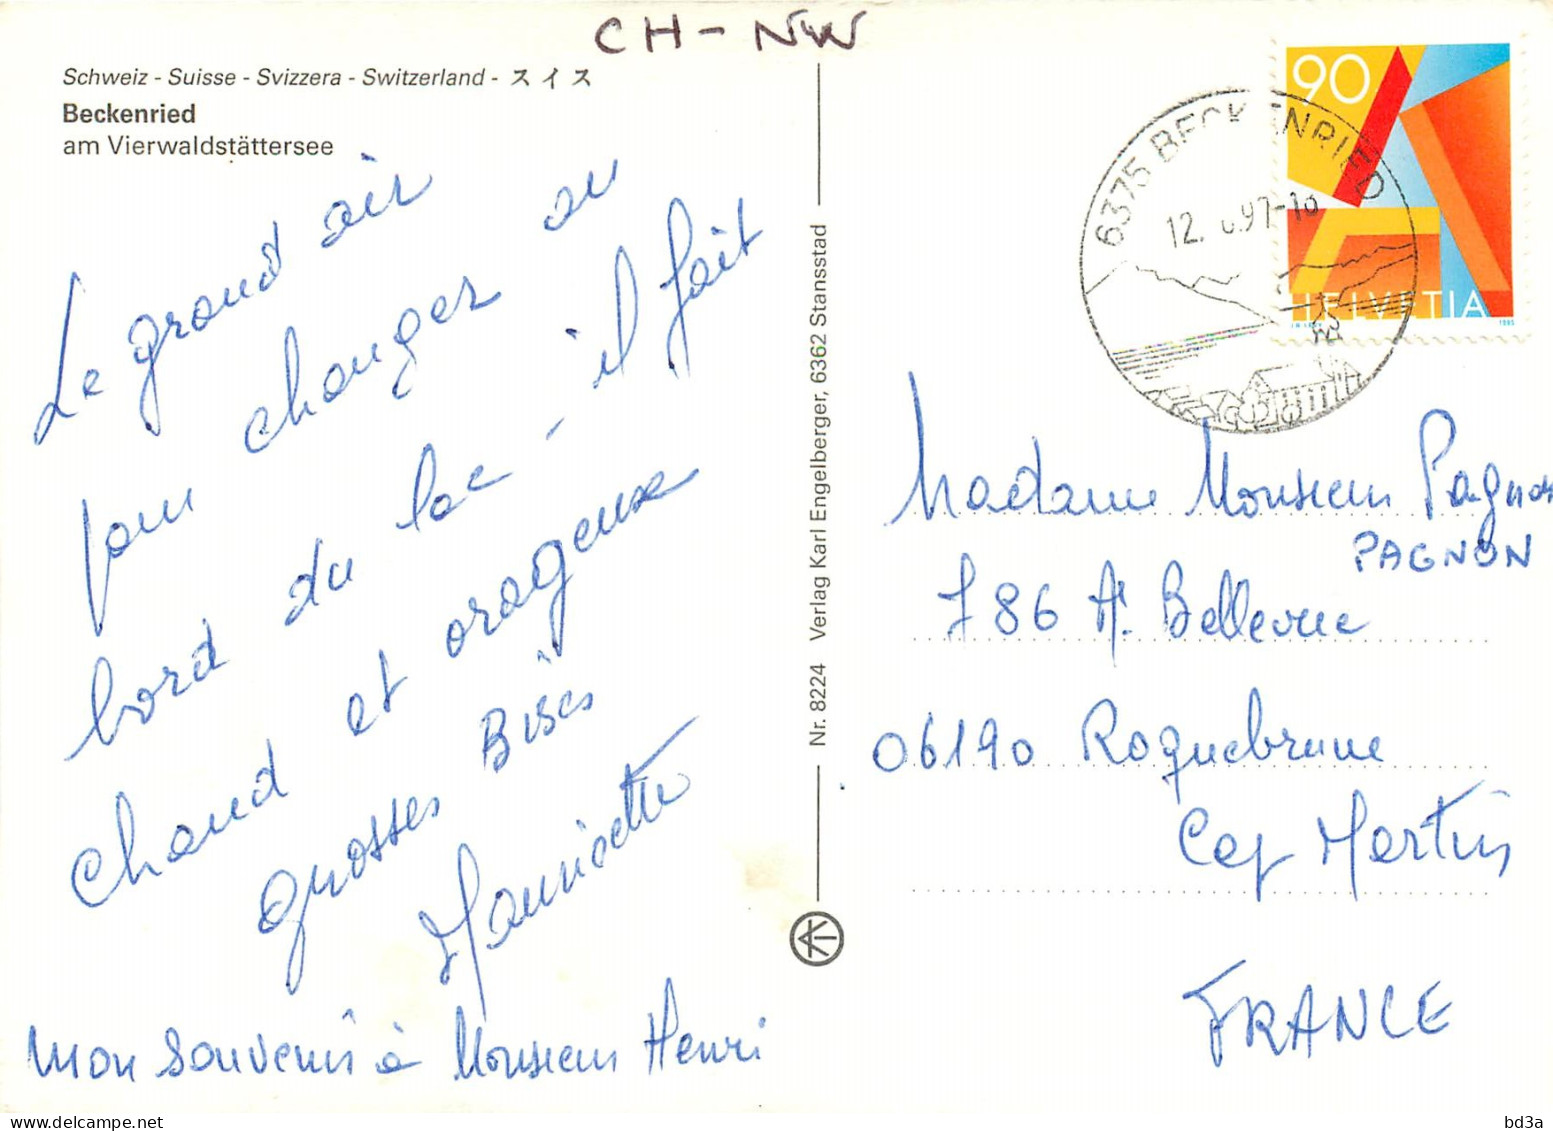 CH-NW
Schweiz - Suisse - Svizzera - Switzerland - スイス
Beckenried
am Vierwaldstättersee
Le grand air
pour changer au
bord du lac - il fait
chaud et orageux
grosses Bises
Mauricette
mon souvenir à Monsieur Henri
Nr. 8224 Verlag Karl Engelberger, 6362 Stansstad
6375 BECKENRIED
12. 97-18
90
HELVETIA
1995
Madame Monsieur Pagnon
PAGNON
786 A. Bellevue
06190 Roquebrune
Cap Martin
FRANCE
bd3a